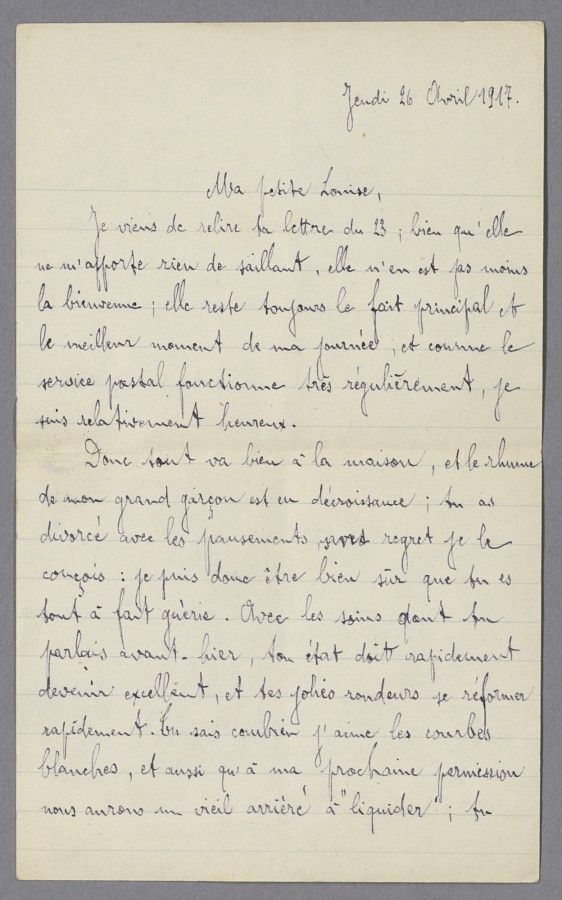 Jeudi 26 Avril 1917.
Ma petite Louise,
Je viens de relire ta lettre du 23 ; bien qu'elle
ne m'apporte rien de saillant, elle n'en est pas moins
la bienvenue ; elle reste toujours le fait principal et
le meilleur moment de ma journée ; et comme le
service postal fonctionne très régulièrement, je
suis relativement heureux.
Donc tout va bien à la maison, et le rhume
de mon grand garçon est en décroissance ; tu as
divorcé avec les pansements, sans regret je le
conçois : je puis donc être bien sûr que tu es
tout à fait guérie. Avec les soins dont tu
parlais avant-hier, ton état doit rapidement
devenir excellent, et tes jolies rondeurs se réformer
rapidement. Tu sais combien j'aime les courbes
blanches, et aussi qu'à ma prochaine permission
nous aurons un vieil arriéré à "liquider" ; tu